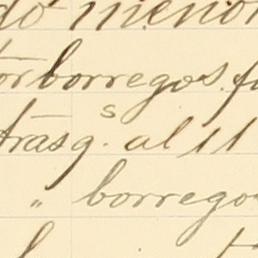 do menor
borregos.
trasg.s al 11
" borrego